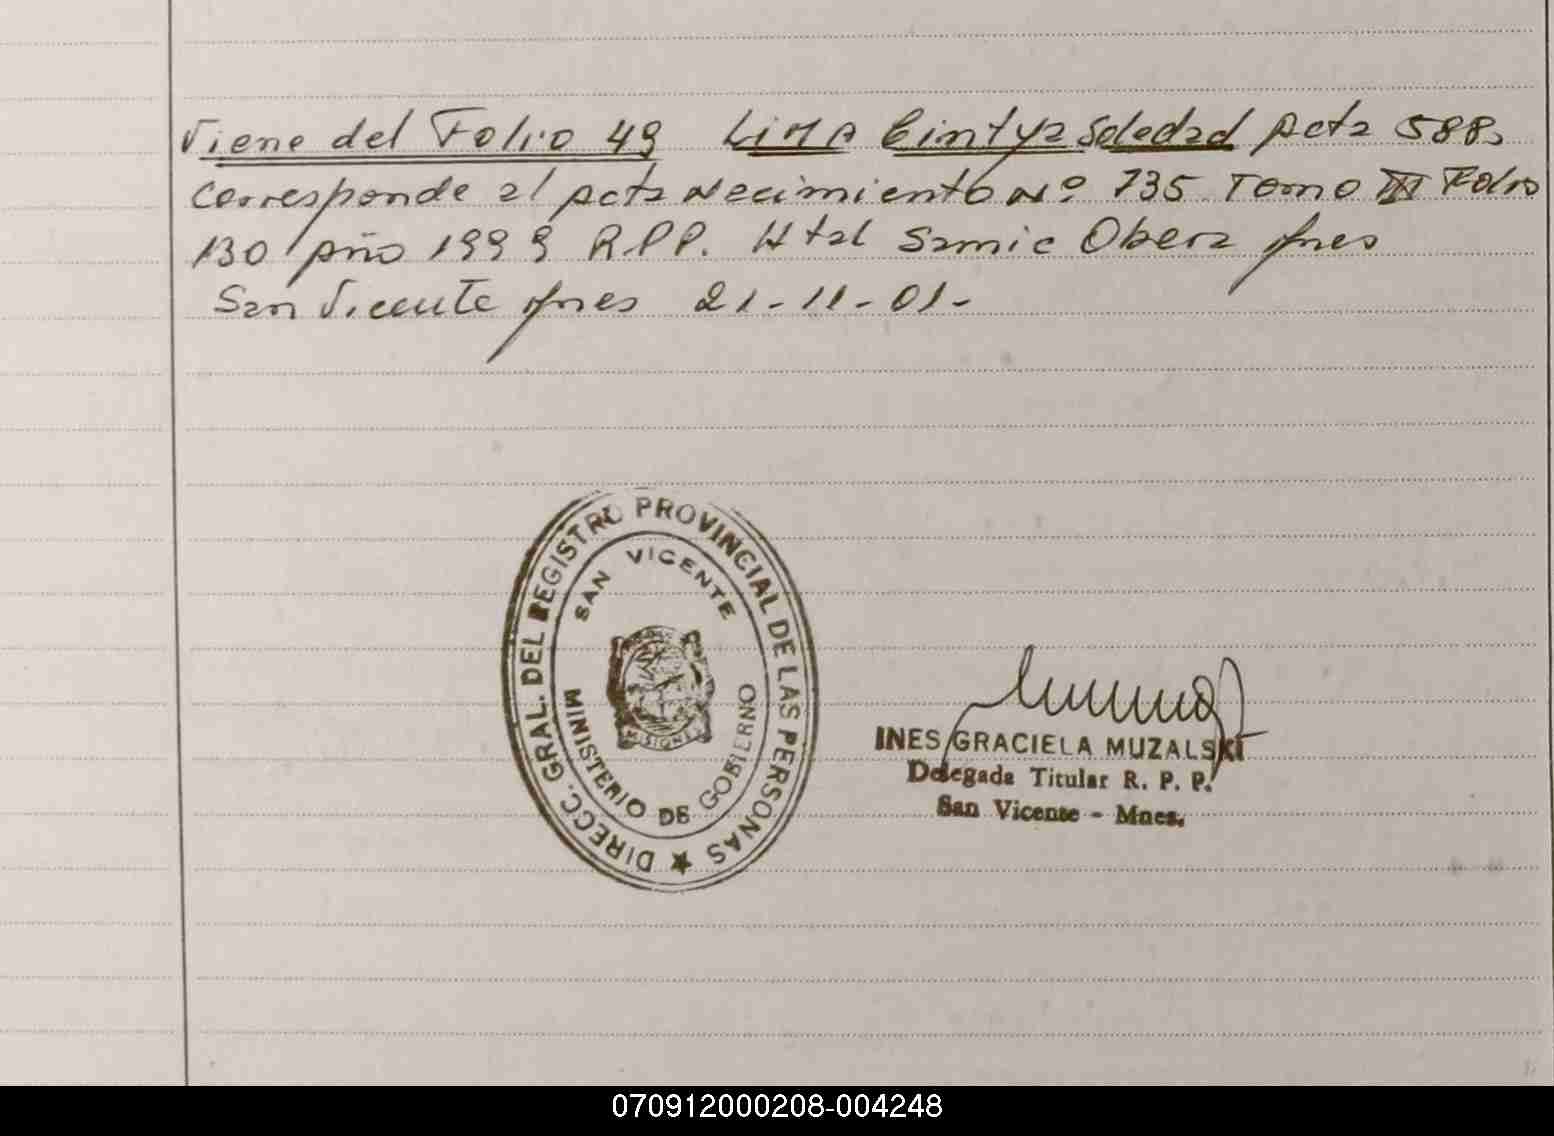 Viene del Folio 49 LIMA Cintya Soledad Acta 588,
Corresponde al Acta Necimiento Nº 735 Tomo III Folio
130 Año 1999 RPP. Htal Samic Obera Mnes
San Vicente Mnes 21-11-01-
DIRECC. GRAL. DEL REGISTRO PROVINCIAL DE LAS PERSONAS ★
SAN VICENTE
MISIONES
MINISTERIO DE GOBIERNO
INES GRACIELA MUZALSKI
Delegada Titular R. P. P.
San Vicente - Mnes.
070912000208-004248